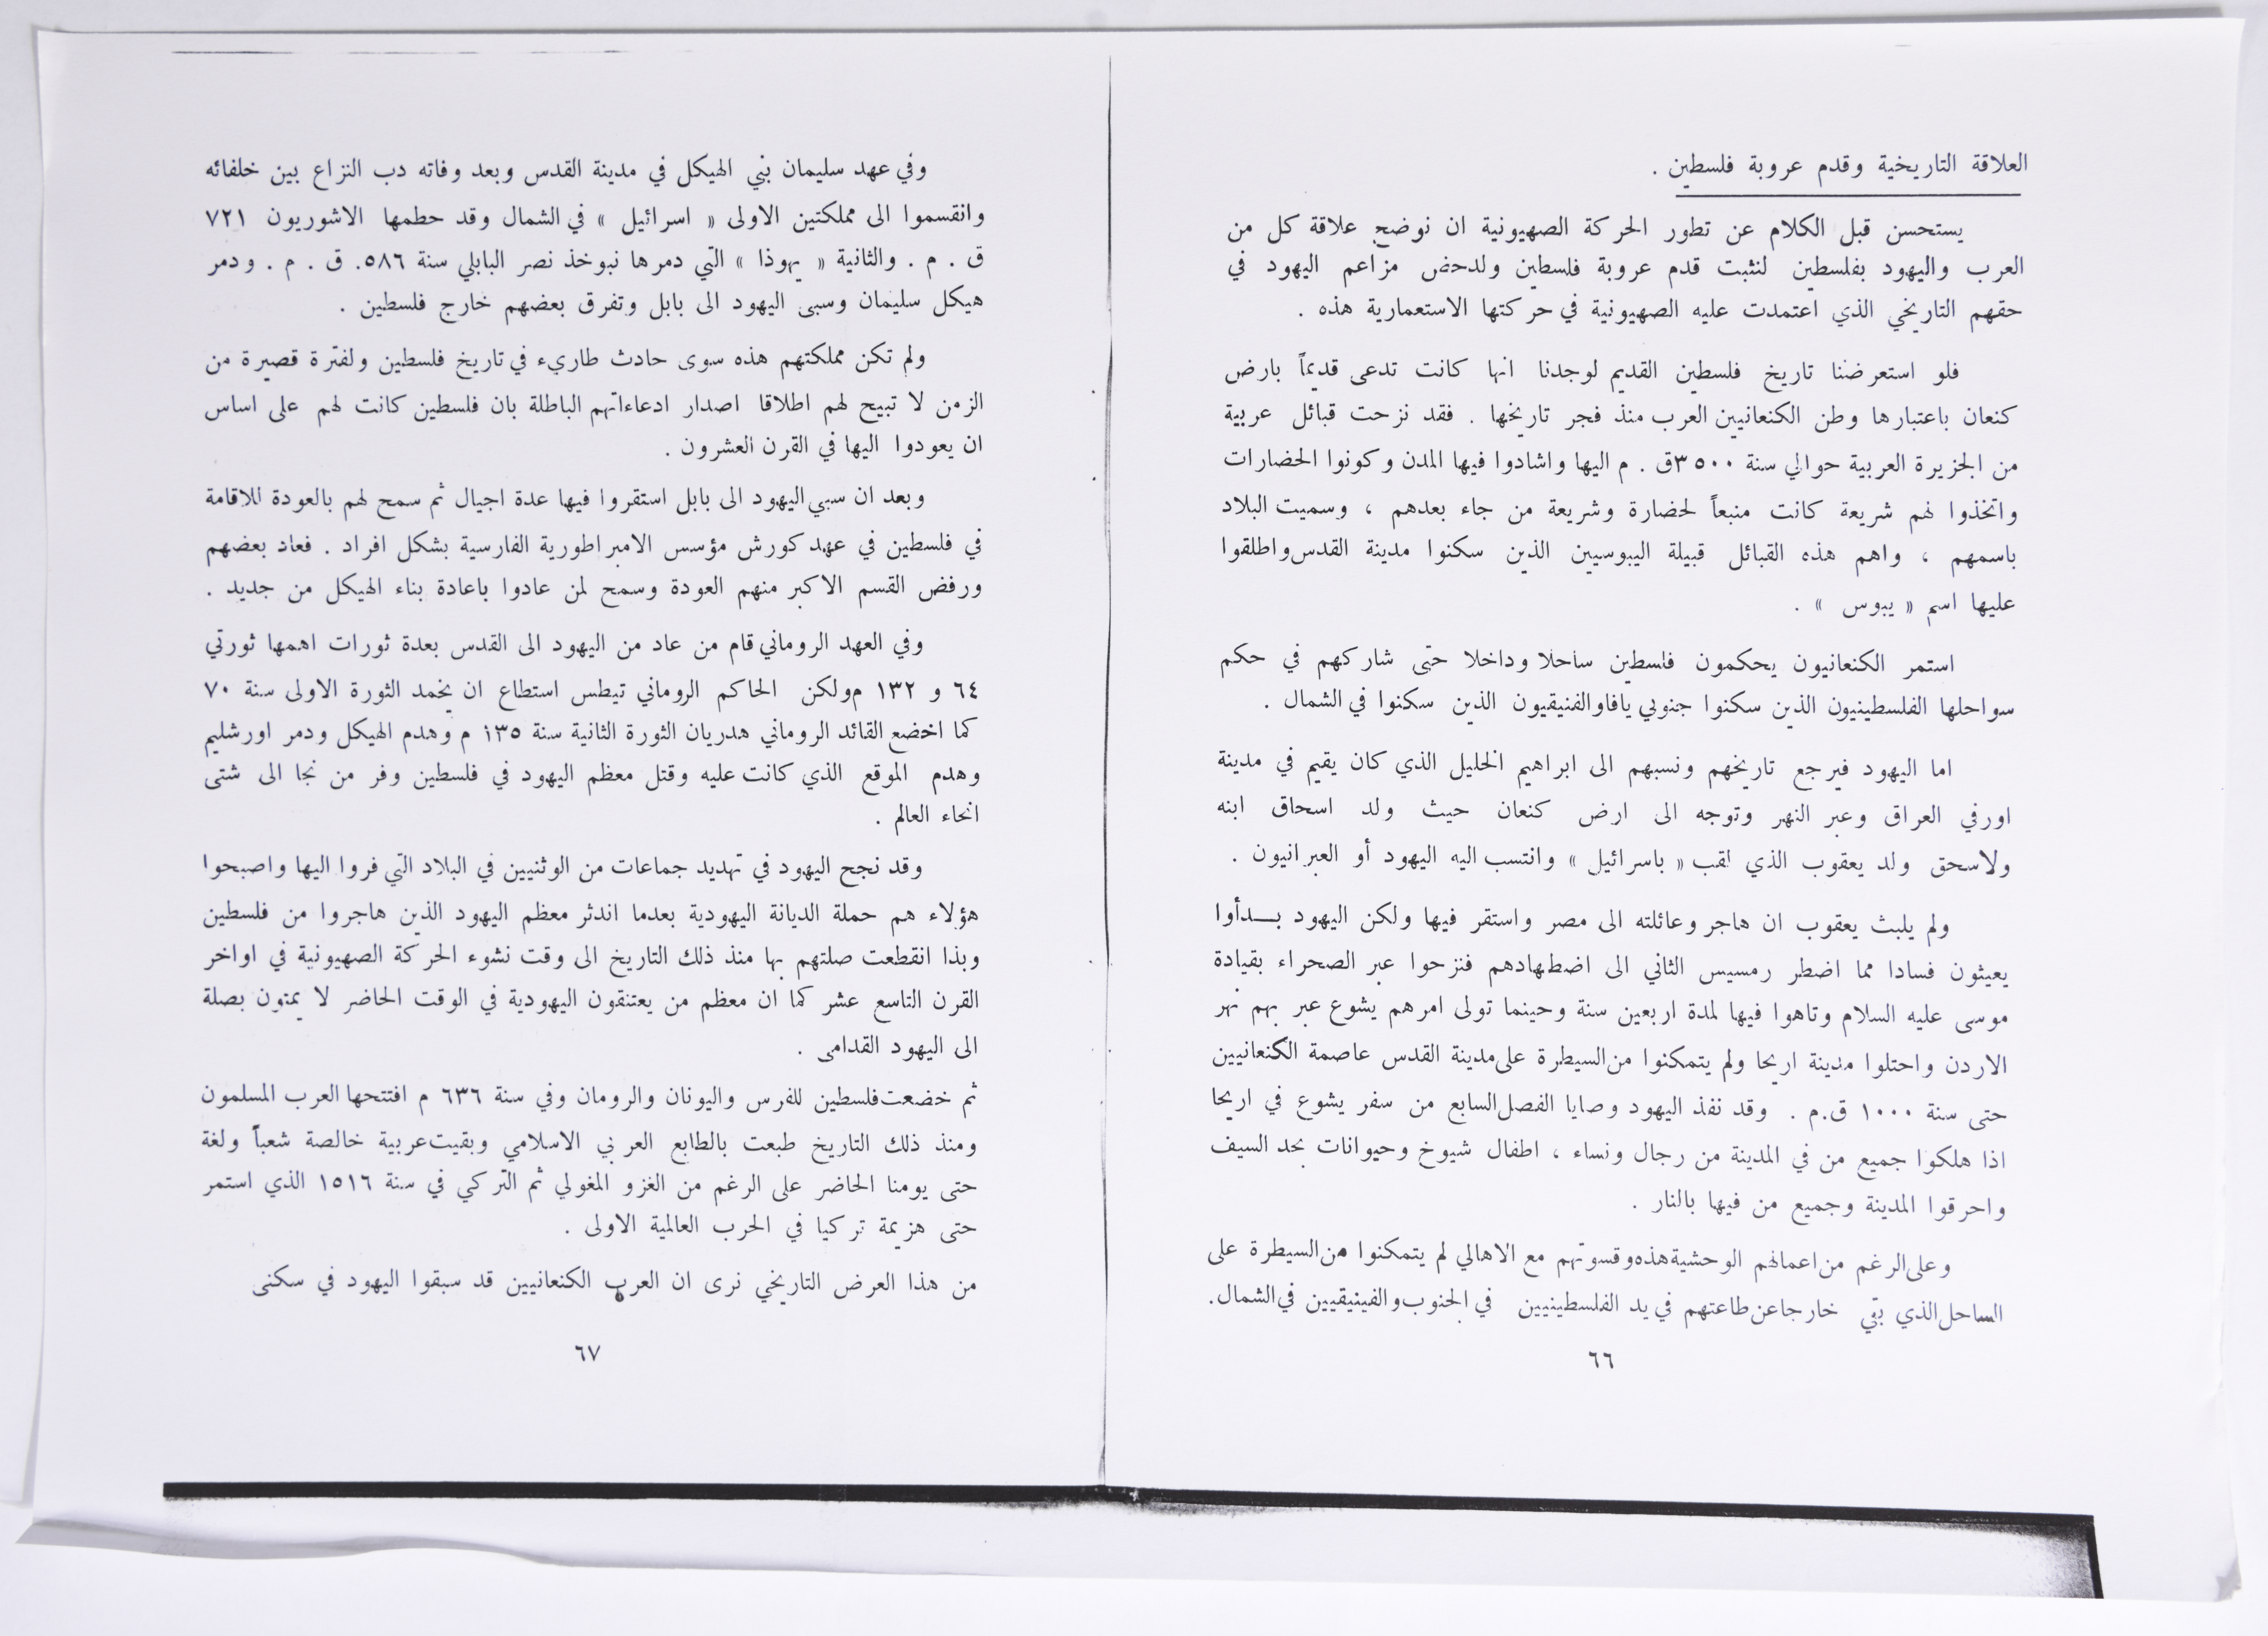 العلاقة التاريخية وقدم عروبة فلسطين .
يستحسن قبل الكلام عن تطور الحركة الصهيونية ان نوضح علاقة كل من
العرب واليهود بفلسطين لنثبت قدم عروبة فلسطين ولدحض مزاعم اليهود في
حقهم التاريخي الذي اعتمدت عليه الصهيونية في حركتها الاستعمارية هذه .
فلو استعرضنا تاريخ فلسطين القديم لوجدنا انها كانت تدعى قديماً بارض
كنعان باعتبارها وطن الكنعانيين العرب منذ فجر تاريخها . فقد نزحت قبائل عربية
من الجزيرة العربية حوالي سنة ٣٥٠٠ق . م اليها واشادوا فيها المدن وكونوا الحضارات
واتخذوا لهم شريعة كانت منبعاً لحضارة وشريعة من جاء بعدهم ، وسميت البلاد
باسمهم ، واهم هذه القبائل قبيلة اليبوسيين الذين سكنوا مدينة القدس واطلقوا
عليها اسم « يبوس » .
استمر الكنعانيون يحكمون فلسطين ساحلا وداخلا حتى شاركهم في حكم
سواحلها الفلسطينيون الذين سكنوا جنوبي يافا والفنيقيون الذين سكنوا في الشمال .
اما اليهود فيرجع تاريخهم ونسبهم الى ابراهيم الخليل الذي كان يقيم في مدينة
اورفي العراق وعبر النهر وتوجه الى ارض كنعان حيث ولد اسحاق ابنه
ولاسحق ولد يعقوب الذي لقب « باسرائيل » وانتسب اليه اليهود أو العبرانيون .
ولم يلبث يعقوب ان هاجر وعائلته الى مصر واستقر فيها ولكن اليهود بـــدأوا
يعيثون فسادا مما اضطر رمسيس الثاني الى اضطهادهم فنزحوا عبر الصحراء بقيادة
موسى عليه السلام وتاهوا فيها لمدة اربعين سنة وحينما تولى امرهم يشوع عبر بهم نهر
الاردن واحتلوا مدينة اريحا ولم يتمكنوا من السيطرة على مدينة القدس عاصمة الكنعانيين
حتى سنة ١٠٠٠ ق.م . وقد نفذ اليهود وصايا الفصل السابع من سفر يشوع في اريحا
اذا هلكوا جميع من في المدينة من رجال ونساء ، اطفال شيوخ وحيوانات بحد السيف
واحرقوا المدينة وجميع من فيها بالنار .
وعلى الرغم من اعمالهم الوحشية هذه وقسوتهم مع الاهالي لم يتمكنوا من السيطرة على
الساحل الذي بقي خارجا عن طاعتهم في يد الفلسطينيين في الجنوب والفينيقيين في الشمال.
٦٦
وفي عهد سليمان بني الهيكل في مدينة القدس وبعد وفاته دب النزاع بين خلفائه
وانقسموا الى مملكتين الاولى « اسرائيل » في الشمال وقد حطمها الاشوريون ٧٢١
ق . م . والثانية « يهوذا » التي دمرها نبوخذ نصر البابلي سنة ٥٨٦. ق . م . ودمر
هيكل سليمان وسبى اليهود الى بابل وتفرق بعضهم خارج فلسطين .
ولم تكن مملكتهم هذه سوى حادث طاريء في تاريخ فلسطين ولفترة قصيرة من
الزمن لا تبيح لهم اطلاقا اصدار ادعاءاتهم الباطلة بان فلسطين كانت لهم على اساس
ان يعودوا اليها في القرن العشرون .
وبعد ان سبي اليهود الى بابل استقروا فيها عدة اجيال ثم سمح لهم بالعودة للاقامة
في فلسطين في عهد كورش مؤسس الامبراطورية الفارسية بشكل افراد . فعاد بعضهم
ورفض القسم الاكبر منهم العودة وسمح لمن عادوا باعادة بناء الهيكل من جديد .
وفي العهد الروماني قام من عاد من اليهود الى القدس بعدة ثورات اهمها ثورتي
٦٤ و ١٣٢ م ولكن الحاكم الروماني تيطس استطاع ان يخمد الثورة الاولى سنة ٧٠
كما اخضع القائد الروماني هدريان الثورة الثانية سنة ١٣٥ م وهدم الهيكل ودمر اورشليم
وهدم الموقع الذي كانت عليه وقتل معظم اليهود في فلسطين وفر من نجا الى شتى
انحاء العالم .
وقد نجح اليهود في تهديد جماعات من الوثنيين في البلاد التي فروا اليها واصبحوا
هؤلاء هم حملة الديانة اليهودية بعدما اندثر معظم اليهود الذين هاجروا من فلسطين
وبذا انقطعت صلتهم بها منذ ذلك التاريخ الى وقت نشوء الحركة الصهيونية في اواخر
القرن التاسع عشر كما ان معظم من يعتنقون اليهودية في الوقت الحاضر لا يمتون بصلة
الى اليهود القدامى .
ثم خضعت فلسطين للفرس واليونان والرومان وفي سنة ٦٣٦ م افتتحها العرب المسلمون
ومنذ ذلك التاريخ طبعت بالطابع العربي الاسلامي وبقيت عربية خالصة شعباً ولغة
حتى يومنا الحاضر على الرغم من الغزو المغولي ثم التركي في سنة ١٥١٦ الذي استمر
حتى هزيمة تركيا في الحرب العالمية الاولى .
من هذا العرض التاريخي نرى ان العرب الكنعانيين قد سبقوا اليهود في سكنى
٦٧